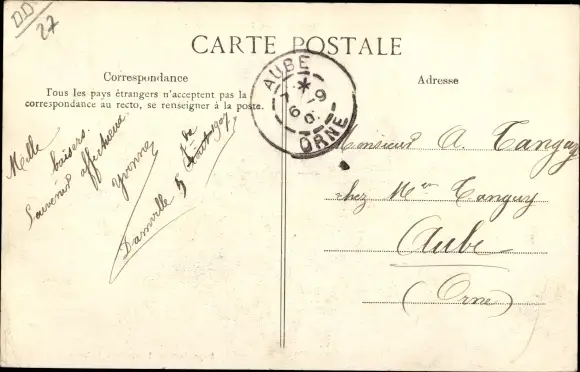 DD
27
CARTE POSTALE
Correspondance
Tous les pays étrangers n'acceptent pas la
correspondance au recto, se renseigner à la poste.
Adresse
AUBE
ORNE
Mille baisers.
Souvenir affectueux
Yvonne
Damville 5 août 1907
Monsieur A. Tanguy
chez Mr Tanguy
Aube
(Orne)